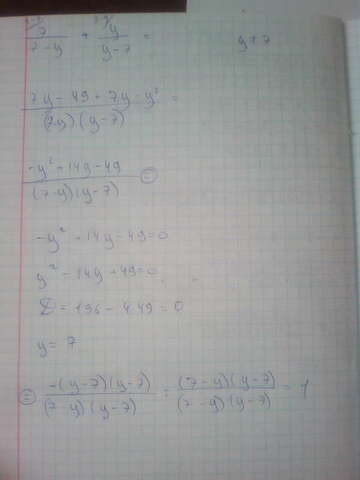 7/(7-y) + y/(y-7) =
y≠7
(7y-49+7y-y²)/((7-y)(y-7)) =
(-y²+14y-49)/((7-y)(y-7)) =
-y²+14y-49=0
y²-14y+49=0
D=196-4·49=0
y=7
= (-(y-7)(y-7))/((7-y)(y-7)) = ((7-y)(y-7))/((7-y)(y-7)) = 1